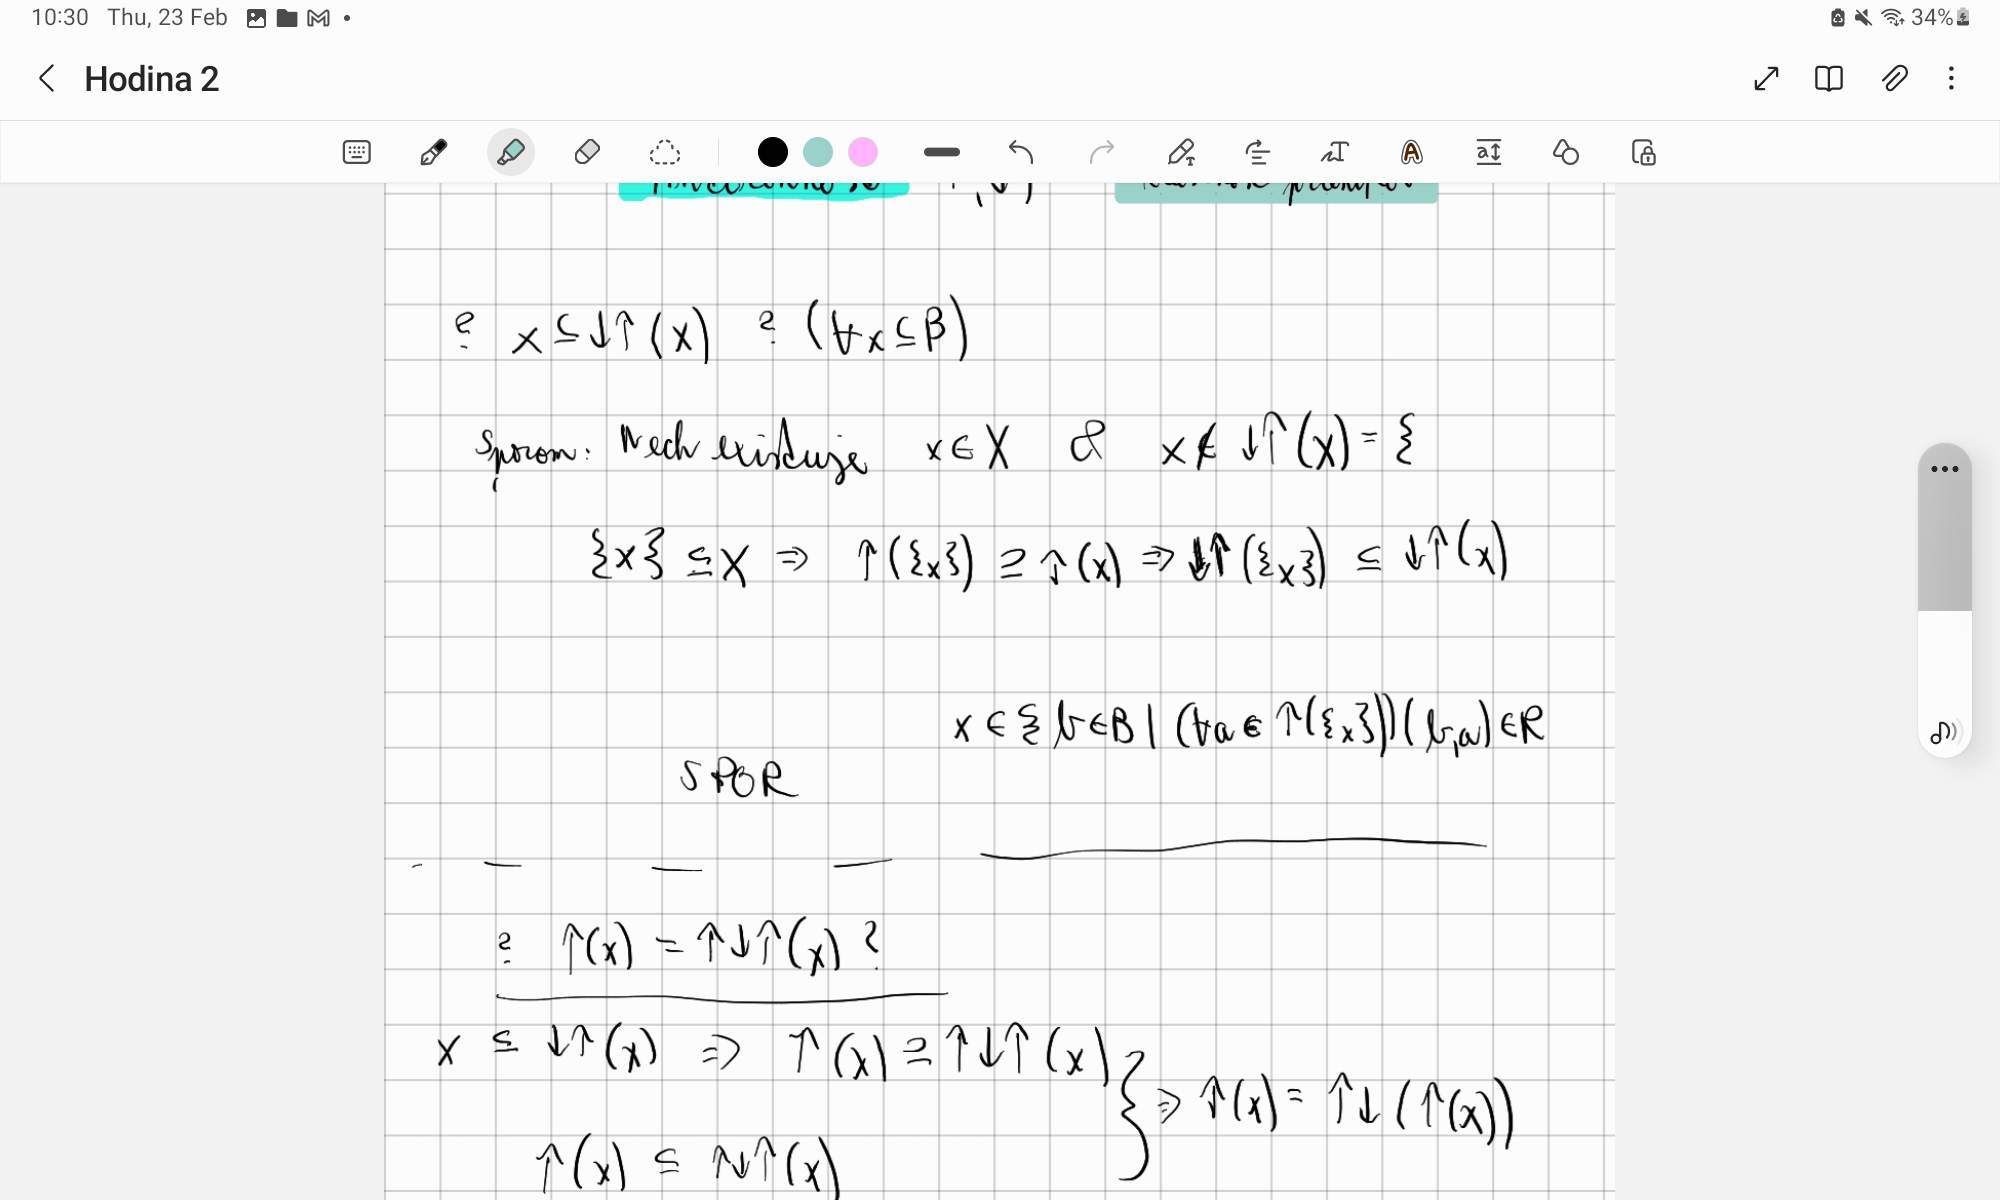 10:30 Thu, 23 Feb 34%
Hodina 2
? X ⊆ ↓↑(X) ? (∀X ⊆ B)
Sporom: Nech existuje x ∈ X & x ∉ ↓↑(X) = {
{x} ⊆ X ⇒ ↑({x}) ⊇ ↑(X) ⇒ ↓↑({x}) ⊆ ↓↑(X)
x ∈ { b ∈ B | (∀a ∈ ↑({x})) (b,a) ∈ R
SPOR
? ↑(X) = ↑↓↑(X) ?
X ⊆ ↓↑(X) ⇒ ↑(X) ⊇ ↑↓↑(X) } ⇒ ↑(X) = ↑↓(↑(X))
↑(X) ⊆ ↑↓↑(X)